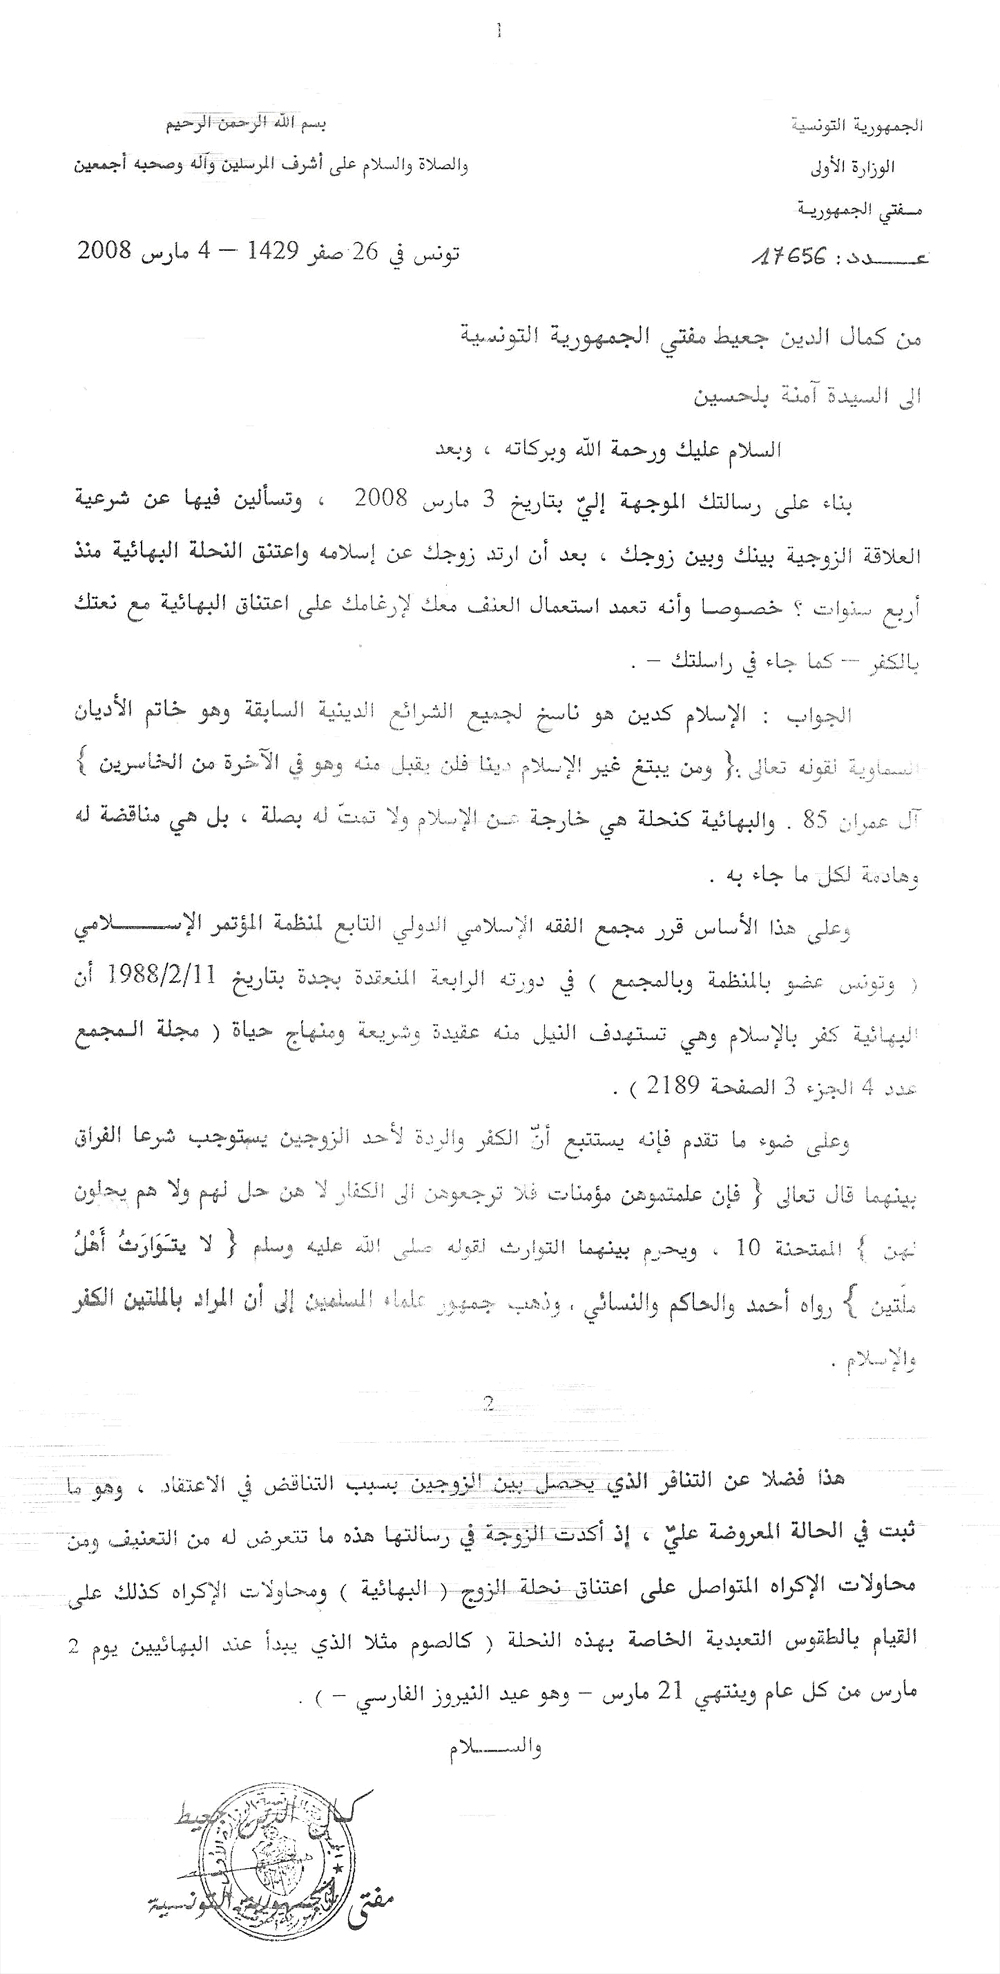 ١
الجمهورية التونسية
الوزارة الأولى
مـفتي الجمهوريـة
عـــدد : 17656
بسم الله الرحمن الرحيم
والصلاة والسلام على أشرف المرسلين وآله وصحبه أجمعين
تونس في 26 صفر 1429 – 4 مارس 2008
من كمال الدين جعيط مفتي الجمهورية التونسية
الى السيدة آمنة بلحسين
السلام عليك ورحمة الله وبركاته ، وبعد
بناء على رسالتك الموجهة إليّ بتاريخ 3 مارس 2008 ، وتسألين فيها عن شرعية
العلاقة الزوجية بينك وبين زوجك ، بعد أن ارتد زوجك عن إسلامه واعتنق النحلة البهائية منذ
أربع سنوات ؟ خصوصا وأنه تعمد استعمال العنف معك لإرغامك على اعتناق البهائية مع نعتك
بالكفر – كما جاء في راسلتك – .
الجواب : الإسلام كدين هو ناسخ لجميع الشرائع الدينية السابقة وهو خاتم الأديان
السماوية لقوله تعالى :{ ومن يبتغ غير الإسلام دينا فلن يقبل منه وهو في الآخرة من الخاسرين }
آل عمران 85 . والبهائية كنحلة هي خارجة عـن الإسلام ولا تمتّ له بصلة ، بل هي مناقضة له
وهادمة لكل ما جاء به .
وعلى هذا الأساس قرر مجمع الفقه الإسلامي الدولي التابع لمنظمة المؤتمر الإســـلامي
( وتونس عضو بالمنظمة وبالمجمع ) في دورته الرابعة المنعقدة بجدة بتاريخ 1988/2/11 أن
البهائية كفر بالإسلام وهي تستهدف النيل منه عقيدة وشريعة ومنهاج حياة ( مجلة الـمجمع
عدد 4 الجزء 3 الصفحة 2189 ) .
وعلى ضوء ما تقدم فإنه يستتبع أنّ الكفر والردة لأحد الزوجين يستوجب شرعا الفراق
بينهما قال تعالى { فإن علمتموهن مؤمنات فلا ترجعوهن الى الكفار لا هن حل لهم ولا هم يحلون
لهن } الممتحنة 10 ، ويحرم بينهما التوارث لقوله صلى الله عليه وسلم { لا يتَوَارَثُ أَهْلُ
ملّتين } رواه أحمد والحاكم والنسائي ، وذهب جمهور علماء المسلمين إلى أن المراد بالملتين الكفر
والإسلام .
2
هذا فضلا عن التنافر الذي يحصل بين الزوجين بسبب التناقض في الاعتقاد ، وهو ما
ثبت في الحالة المعروضة عليّ ، إذ أكدت الزوجة في رسالتها هذه ما تتعرض له من التعنيف ومن
محاولات الإكراه المتواصل على اعتناق نحلة الزوج ( البهائية ) ومحاولات الإكراه كذلك على
القيام بالطقوس التعبدية الخاصة بهذه النحلة ( كالصوم مثلا الذي يبدأ عند البهائيين يوم 2
مارس من كل عام وينتهي 21 مارس – وهو عيد النيروز الفارسي – ) .
والســـلام
كمال الدين جعيط
مفتي الجمهورية التونسية